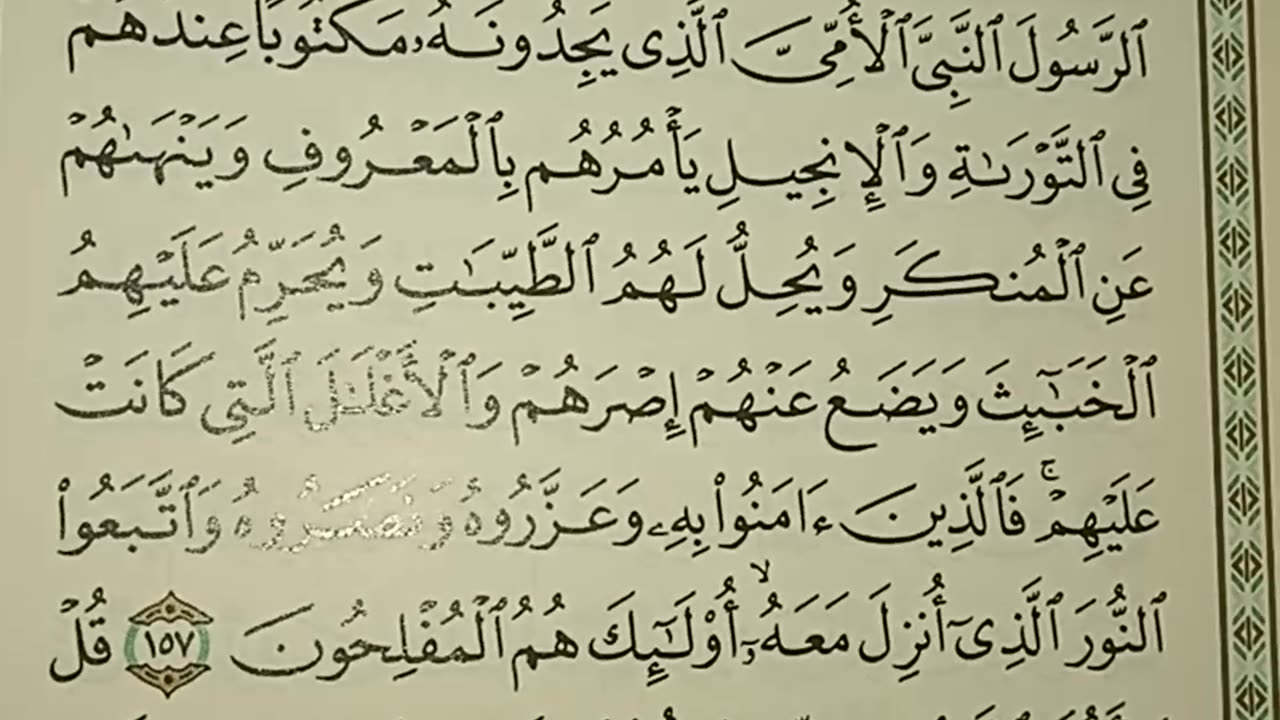 ٱلرَّسُولَ ٱلنَّبِىَّ ٱلْأُمِّىَّ ٱلَّذِى يَجِدُونَهُۥ مَكْتُوبًا عِندَهُمْ
فِى ٱلتَّوْرَىٰةِ وَٱلْإِنجِيلِ يَأْمُرُهُم بِٱلْمَعْرُوفِ وَيَنْهَىٰهُمْ
عَنِ ٱلْمُنكَرِ وَيُحِلُّ لَهُمُ ٱلطَّيِّبَـٰتِ وَيُحَرِّمُ عَلَيْهِمُ
ٱلْخَبَـٰٓئِثَ وَيَضَعُ عَنْهُمْ إِصْرَهُمْ وَٱلْأَغْلَـٰلَ ٱلَّتِى كَانَتْ
عَلَيْهِمْ ۚ فَٱلَّذِينَ ءَامَنُوا۟ بِهِۦ وَعَزَّرُوهُ وَنَصَرُوهُ وَٱتَّبَعُوا۟
ٱلنُّورَ ٱلَّذِىٓ أُنزِلَ مَعَهُۥٓ ۙ أُو۟لَـٰٓئِكَ هُمُ ٱلْمُفْلِحُونَ ١٥٧ قُلْ